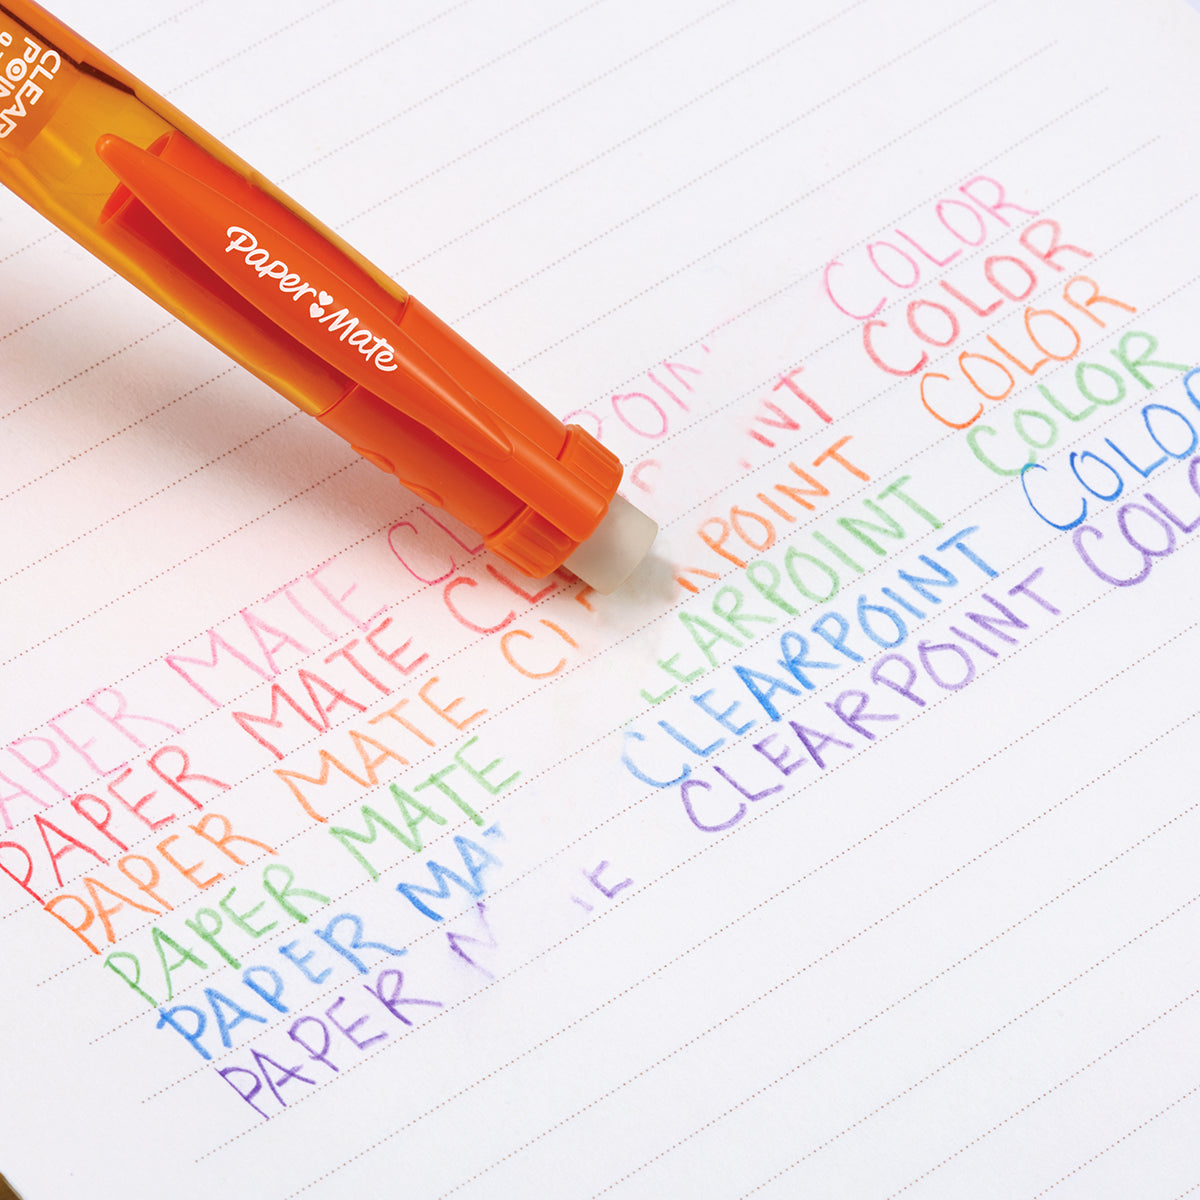 CLEAR
POIN
0.
Paper Mate
APER MATE CL POIN COLOR
PAPER MATE CLE INT COLOR
PAPER MATE CL RPOINT COLOR
PAPER MATE LEARPOINT COLOR
PAPER MA CLEARPOINT COLO
PAPER M E CLEARPOINT COLO